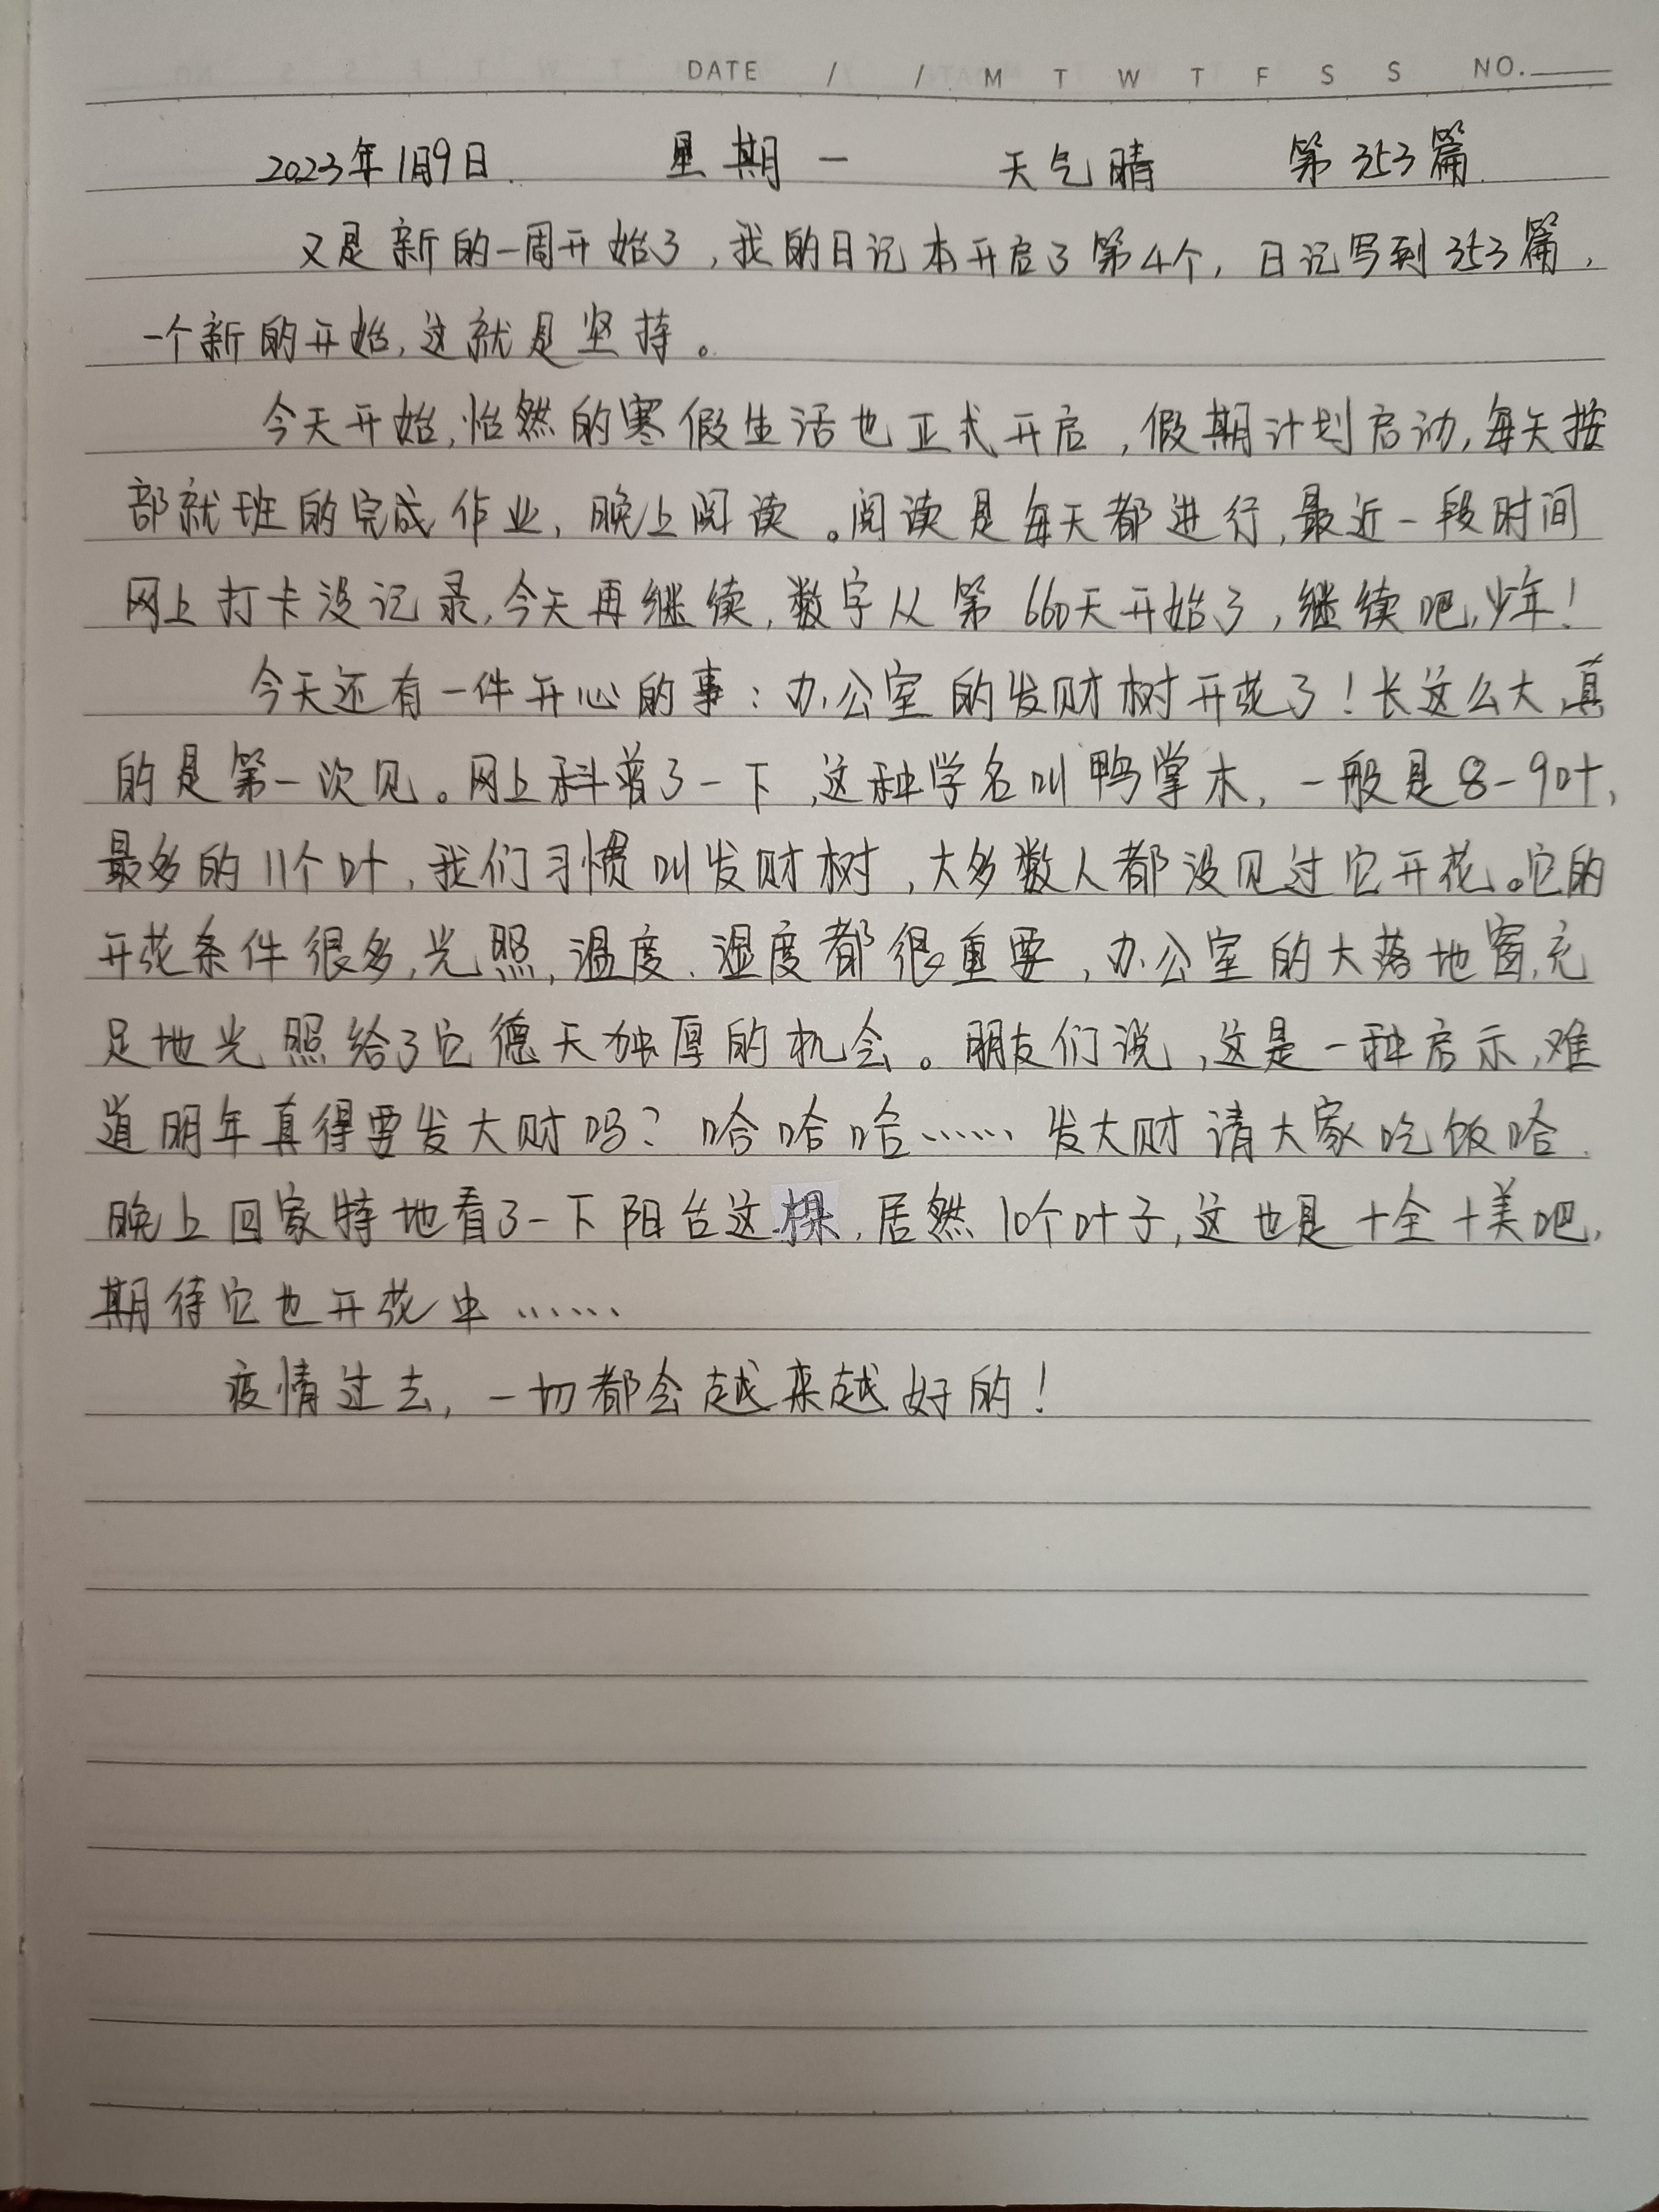 DATE / / M T W T F S S NO.
2023年1月9日. 星期一 天气晴 第353篇.
又是新的一周开始了,我的日记本开启了第4个,日记写到353篇,
一个新的开始,这就是坚持。
今天开始,怡然的寒假生活也正式开启,假期计划启动,每天按
部就班的完成作业,晚上阅读。阅读是每天都进行,最近一段时间
网上打卡没记录,今天再继续,数字从第660天开始了,继续吧,少年!
今天还有一件开心的事:办公室的发财树开花了!长这么大,真
的是第一次见。网上科普了一下,这种学名叫鸭掌木,一般是8-9叶,
最多的11个叶,我们习惯叫发财树,大多数人都没见过它开花。它的
开花条件很多,光照,温度、湿度都很重要,办公室的大落地窗,充
足地光照给了它德天独厚的机会。朋友们说,这是一种启示,难
道明年真得要发大财吗?哈哈哈……发大财请大家吃饭哈.
晚上回家特地看了一下阳台这棵,居然10个叶子,这也是十全十美吧,
期待它也开花中……
疫情过去,一切都会越来越好的!